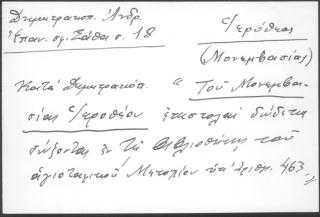 Δημητρακοπ. Ἀνδρ.
Ἐπαν. σμ. Σάθα σ. 18
Ἱερόθεος
(Μονεμβασίας)
Κατὰ Δημητρακόπ. " Τοῦ Μονεμβα-
σίας Ἱεροθέου ἐπιστολαὶ δώδεκα
σώζονται ἐν τῇ Βιβλιοθήκῃ τοῦ
ἁγιοταφιτικοῦ Μετοχίου ὑπ' ἀριθμ. 463"